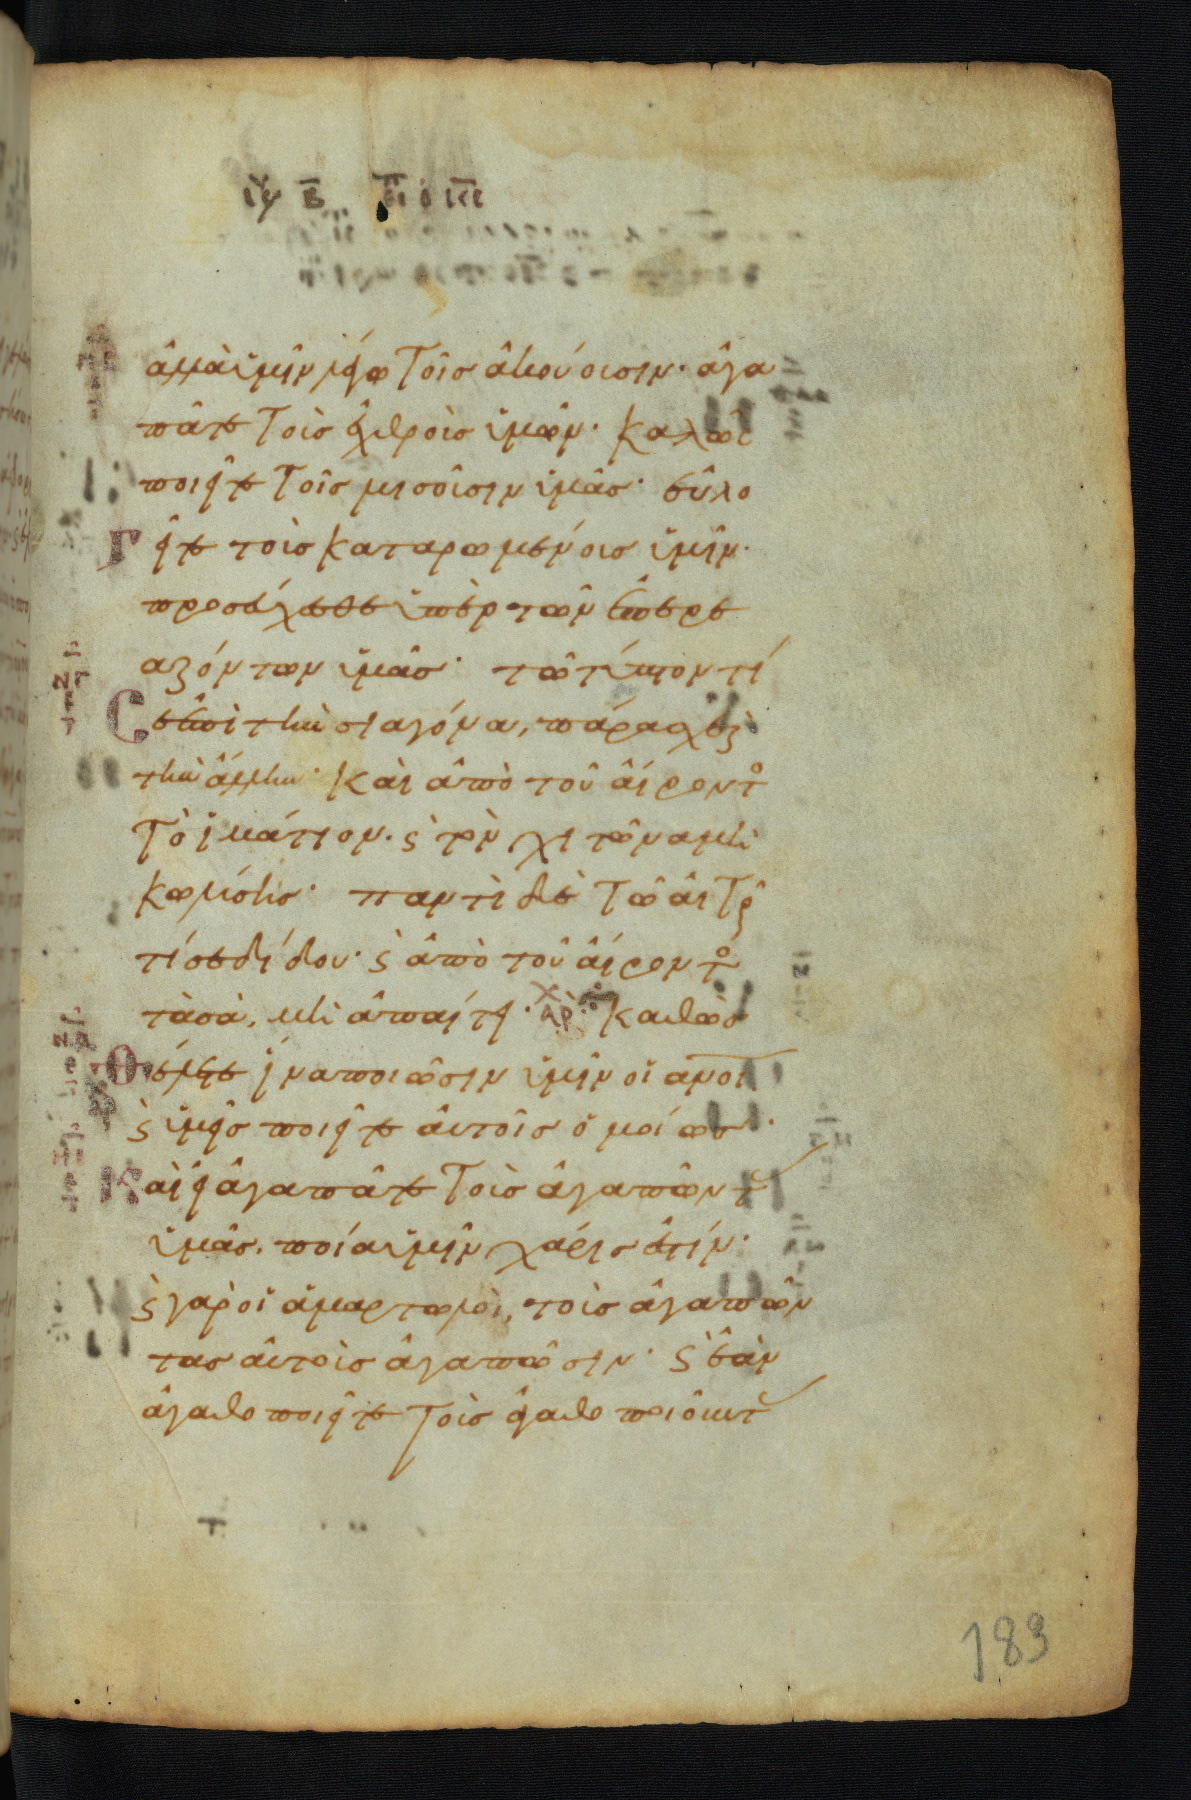 ἀλλὰ ὑμῖν λέγω τοῖς ἀκούουσιν· ἀγα
πᾶτε τοὺς ἐχθροὺς ὑμῶν· καλῶς
ποιεῖτε τοῖς μισοῦσιν ὑμᾶς· εὐλο
γεῖτε τοὺς καταρωμένους ὑμῖν·
προσεύχεσθε ὑπὲρ τῶν ἐπηρε
αζόντων ὑμᾶς· τῶ τύπτοντί
σε ἐπὶ τὴν σιαγόνα, πάρεχε
τὴν ἄλλην· καὶ ἀπὸ τοῦ αἴροντο
τὸ ἱμάτιον· ϛ τὸν χιτῶνα μὴ
κωλύσης· παντὶ δὲ τῶ αἰτοῦν
τί σε δίδου· ϛ ἀπὸ τοῦ αἴροντο
τὰ σὰ, μὴ ἀπαίτει· ΑΡΧ καθὼς
θέλετε ἵνα ποιῶσιν ὑμῖν οἱ ανοι
ϛ ὑμεῖς ποιεῖτε αὐτοῖς ὁμοίως·
Καὶ εἰ ἀγαπᾶτε τοὺς ἀγαπῶντ
ὑμᾶς, ποία ὑμῖν χάρις ἐστίν·
ϛ γὰρ οἱ ἁμαρτωλοὶ, τοὺς ἀγαπῶν
τας αὐτοὺς ἀγαπῶσιν· ϛ ἐὰν
ἀγαθοποιεῖτε τοὺς ἀγαθοποιοῦντ
183